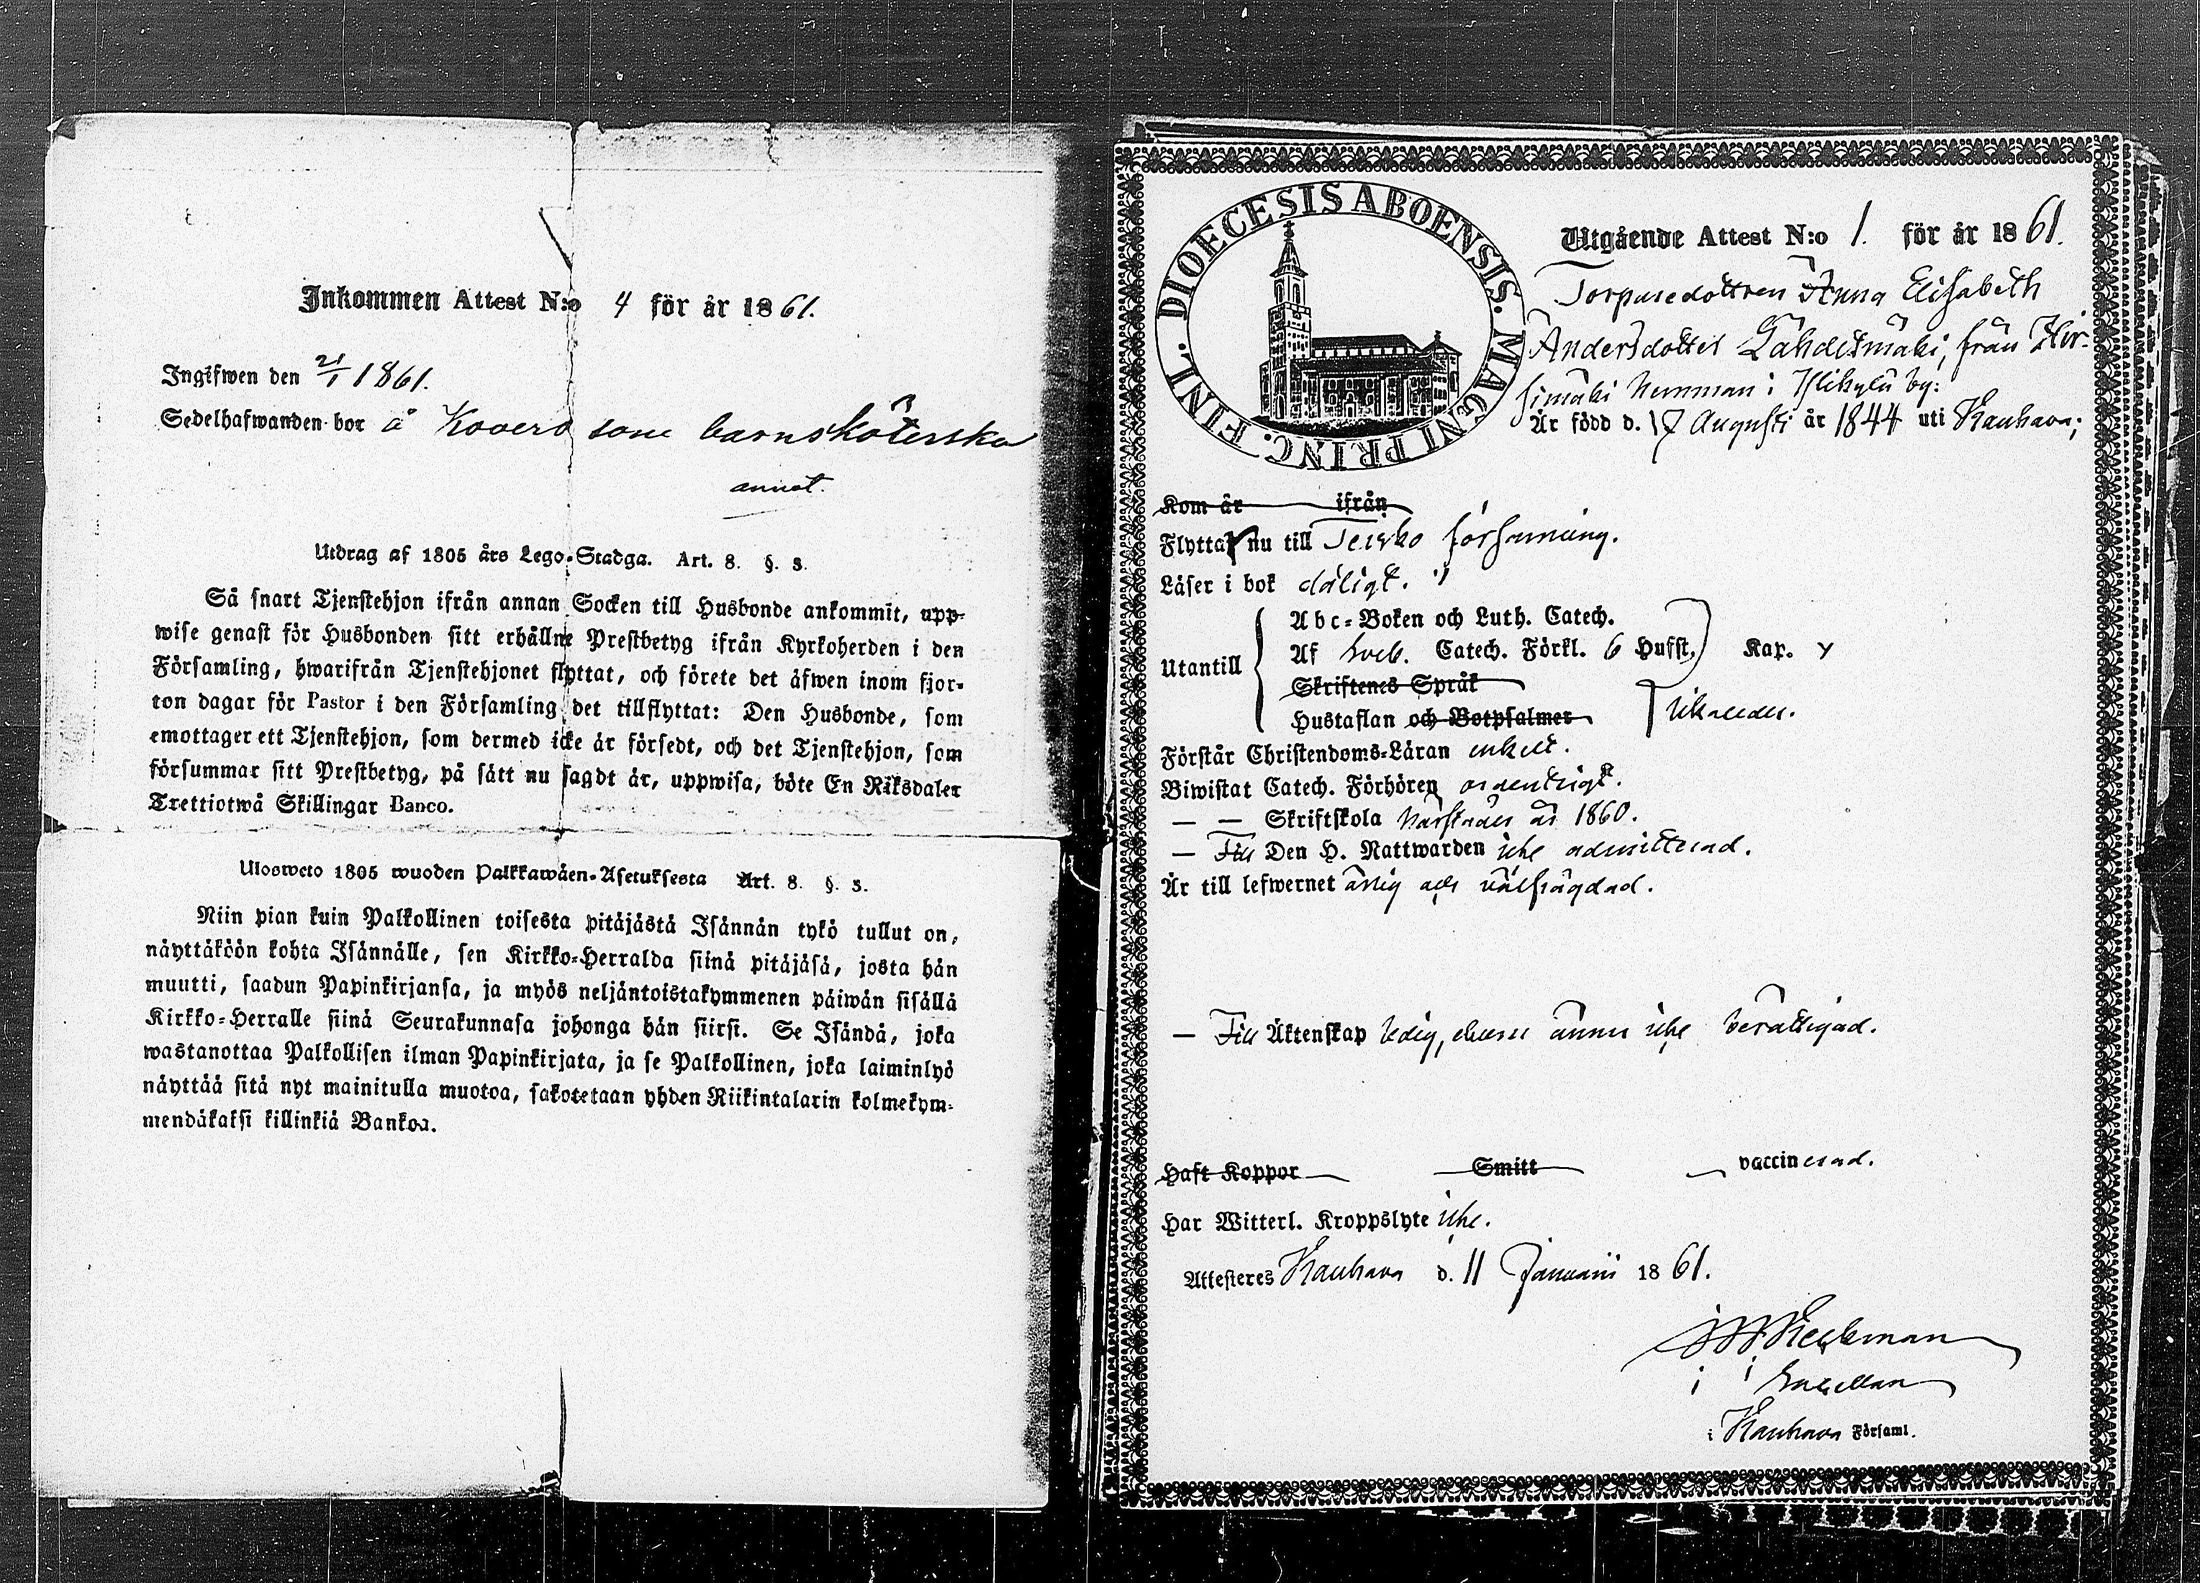 Inkommen Attest N:o 4 för år 1861.
Ingifwen den 21/1 1861.
Sedelhafwanden bor å Kovero som barnsköterska
annot.
Utdrag af 1805 års Lego-Stadga. Art. 8. §. 3.
Så snart Tjenstehjon ifrån annan Socken till Husbonde ankommit, upp-
wise genast för Husbonden sitt erhållne Prestbetyg ifrån Kyrkoherden i den
Församling, hwarifrån Tjenstehjonet flyttat, och förete det äfwen inom fjor-
ton dagar för Pastor i den Församling det tillflyttat: Den Husbonde, som
emottager ett Tjenstehjon, som dermed icke är försedt, och det Tjenstehjon, som
försummar sitt Prestbetyg, på sätt nu sagdt är, uppwisa, böte En Riksdaler
Trettiotwå Skillingar Banco.
Ulosweto 1805 wuoden Palkkawäen-Asetuksesta Art. 8. §. 3.
Niin pian kuin Palkollinen toisesta pitäjästä Isännän tykö tullut on,
näyttäköön kohta Isännälle, sen Kirkko-Herralda siinä pitäjäsä, josta hän
muutti, saadun Papinkirjansa, ja myös neljäntoistakymmenen päiwän sisällä
Kirkko-Herralle siinä Seurakunnasa johonga hän siirsi. Se Isändä, joka
wastanottaa Palkollisen ilman Papinkirjata, ja se Palkollinen, joka laiminlyö
näyttää sitä nyt mainitulla muotoa, sakotetaan yhden Riikintalarin kolmekym-
mendäkaksi killinkiä Bankoa.
DIOECESIS ABOENSIS. MAGNI PRINC. FINL.
Utgående Attest N:o 1. för år 1861.
Torparedottren Anna Elisabeth
Andersdotter Lahdesmäki, från Hir-
simäki hemman i Ylikylä by:
Är född d. 17 Augusti år 1844 uti Kauhava;
Kom år ifrån
Flyttar nu till församling.
Läser i bok dåligt.
Utantill
Abc-Boken och Luth. Catech.
Af Sveb. Catech. Förkl. 6 Hufst. Kap.
Skriftenes Språk
Hustaflan och Botpsalmer
Förstår Christendoms-Läran enkelt.
Biwistat Catech. Förhören ordentligt.
— — Skriftskola härstädes år 1860.
— Till Den H. Nattwarden icke admitterad.
Är till lefwernet ärlig och välfrägdad.
— Till Äktenskap ledig, ehuru ännu icke berättigad.
Haft Koppor Smitt vaccinerad.
Har Witterl. Kroppslyte icke.
Attesteres Kauhava d. 11 Januarii 1861.
i Kauhava Församl.